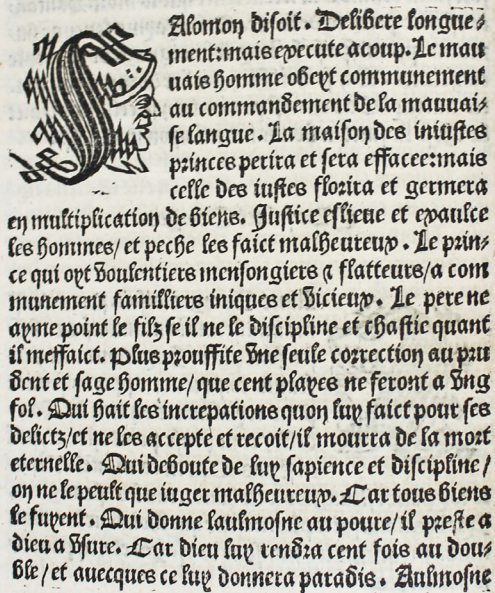 SAlomon disoit. Delibere longue-
ment: mais execute acoup. Le mau
uais homme obeyt communement
au commandement de la mauuai-
se langue. La maison des iniustes
princes perira et sera effacee: mais
celle des iustes florira et germera
en multiplication de biens. Justice eslieue et exaulce
les hommes/ et peche les faict malheureux. Le prin-
ce qui oyt voulentiers mensongiers ⁊ flatteurs/ a com
munement familliers iniques et vicieux. Le pere ne
ayme point le filz se il ne le discipline et chastie quant
il meffaict. Plus prouffite vne seule correction au pru
dent et sage homme/ que cent playes ne feront a vng
fol. Qui hait les increpations quon luy faict pour ses
delictz/ et ne les accepte et recoit/ il mourra de la mort
eternelle. Qui deboute de luy sapience et discipline/
on ne le peult que iuger malheureux. Car tous biens
le fuyent. Qui donne laulmosne au poure/ il preste a
dieu a vsure. Car dieu luy rendra cent fois au dou-
ble/ et auecques ce luy donnera paradis. Aulmosne